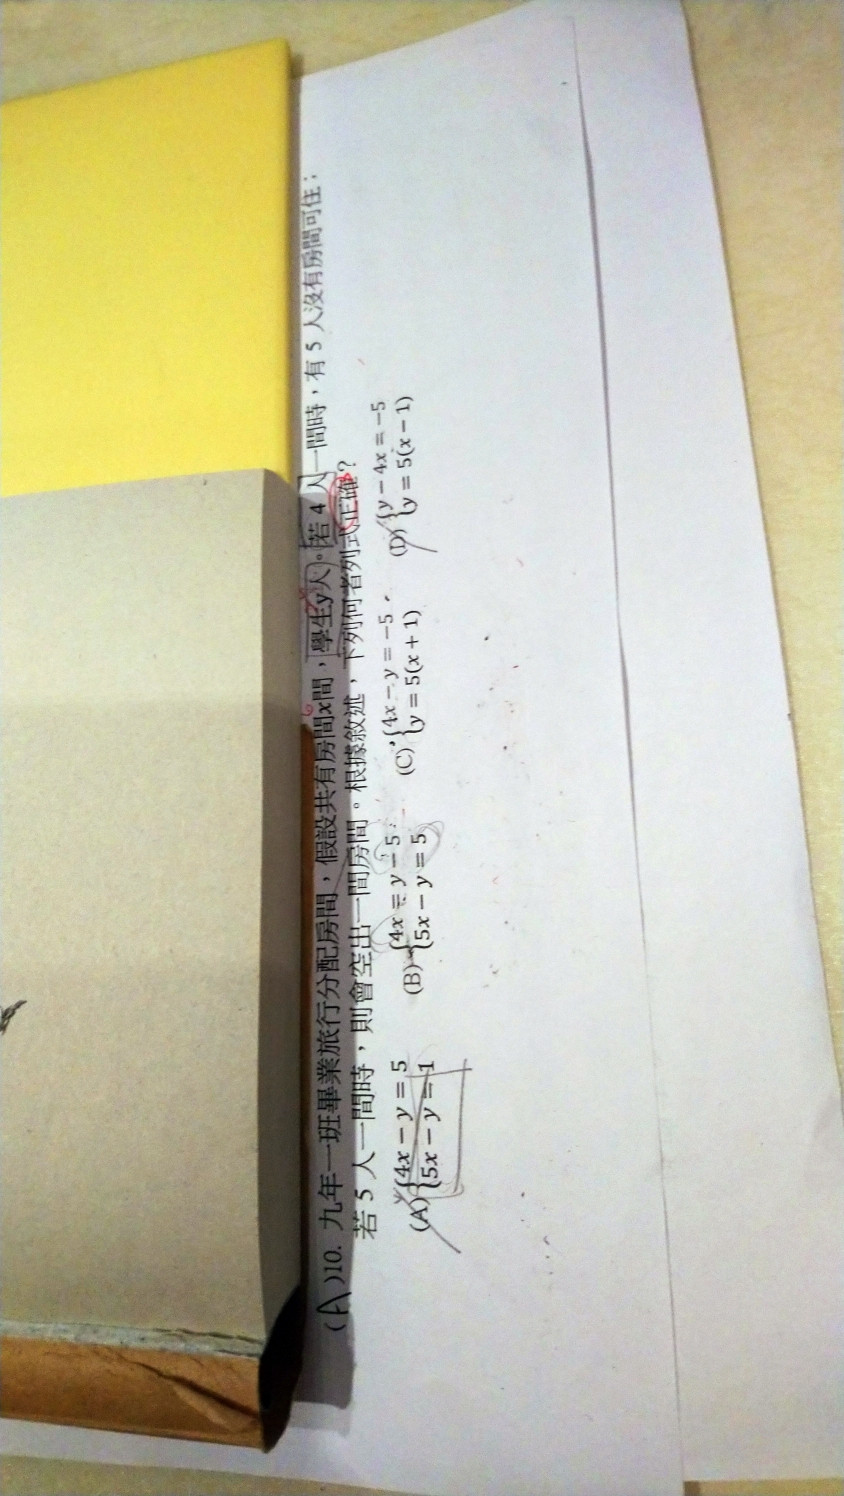 (A)10. 九年一班畢業旅行分配房間，假設共有房間x間，學生y人。若 4 人一間時，有 5 人沒有房間可住；
若 5 人一間時，則會空出一間房間。根據敘述，下列何者列式正確？
(A) {4x − y = 5 (B) {4x = y − 5 (C) {4x − y = −5 (D) {y − 4x = −5
{5x − y = 1 {5x − y = 5 {y = 5(x + 1) {y = 5(x − 1)